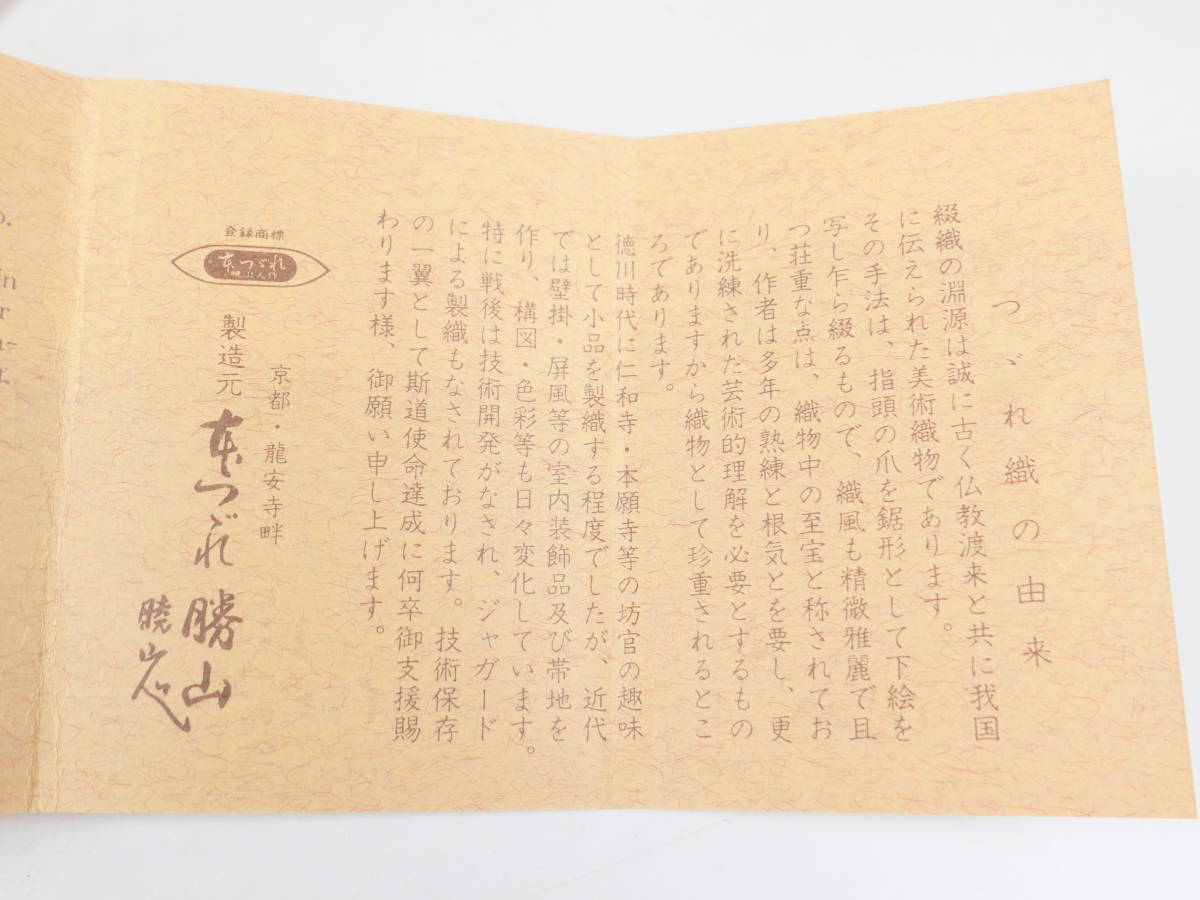 つゞれ織の由来
綴織の淵源は誠に古く仏教渡来と共に我国
に伝えられた美術織物であります。
その手法は、指頭の爪を鋸形として下絵を
写し乍ら綴るもので、織風も精微雅麗で且
つ荘重な点は、織物中の至宝と称されてお
り、作者は多年の熟練と根気とを要し、更
に洗練された芸術的理解を必要とするもの
でありますから織物として珍重されるとこ
ろであります。
徳川時代に仁和寺・本願寺等の坊官の趣味
として小品を製織する程度でしたが、近代
では壁掛・屏風等の室内装飾品及び帯地を
作り、構図・色彩等も日々変化しています。
特に戦後は技術開発がなされ、ジャガード
による製織もなされております。技術保存
の一翼として斯道使命達成に何卒御支援賜
わります様、御願い申し上げます。
京都・龍安寺畔
登録商標
製造元
本つゞれ 勝山